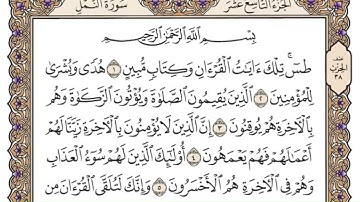 الجزء التاسع عشر سورة النمل
بِسْمِ ٱللَّهِ ٱلرَّحْمَٰنِ ٱلرَّحِيمِ
طسٓ ۚ تِلْكَ ءَايَٰتُ ٱلْقُرْءَانِ وَكِتَابٍ مُّبِينٍ ١ هُدًى وَبُشْرَىٰ
لِلْمُؤْمِنِينَ ٢ ٱلَّذِينَ يُقِيمُونَ ٱلصَّلَوٰةَ وَيُؤْتُونَ ٱلزَّكَوٰةَ وَهُم
بِٱلْءَاخِرَةِ هُمْ يُوقِنُونَ ٣ إِنَّ ٱلَّذِينَ لَا يُؤْمِنُونَ بِٱلْءَاخِرَةِ زَيَّنَّا لَهُمْ
أَعْمَٰلَهُمْ فَهُمْ يَعْمَهُونَ ٤ أُو۟لَٰٓئِكَ ٱلَّذِينَ لَهُمْ سُوٓءُ ٱلْعَذَابِ
وَهُمْ فِى ٱلْءَاخِرَةِ هُمُ ٱلْأَخْسَرُونَ ٥ وَإِنَّكَ لَتُلَقَّى ٱلْقُرْءَانَ مِن
الحزب
٣٨